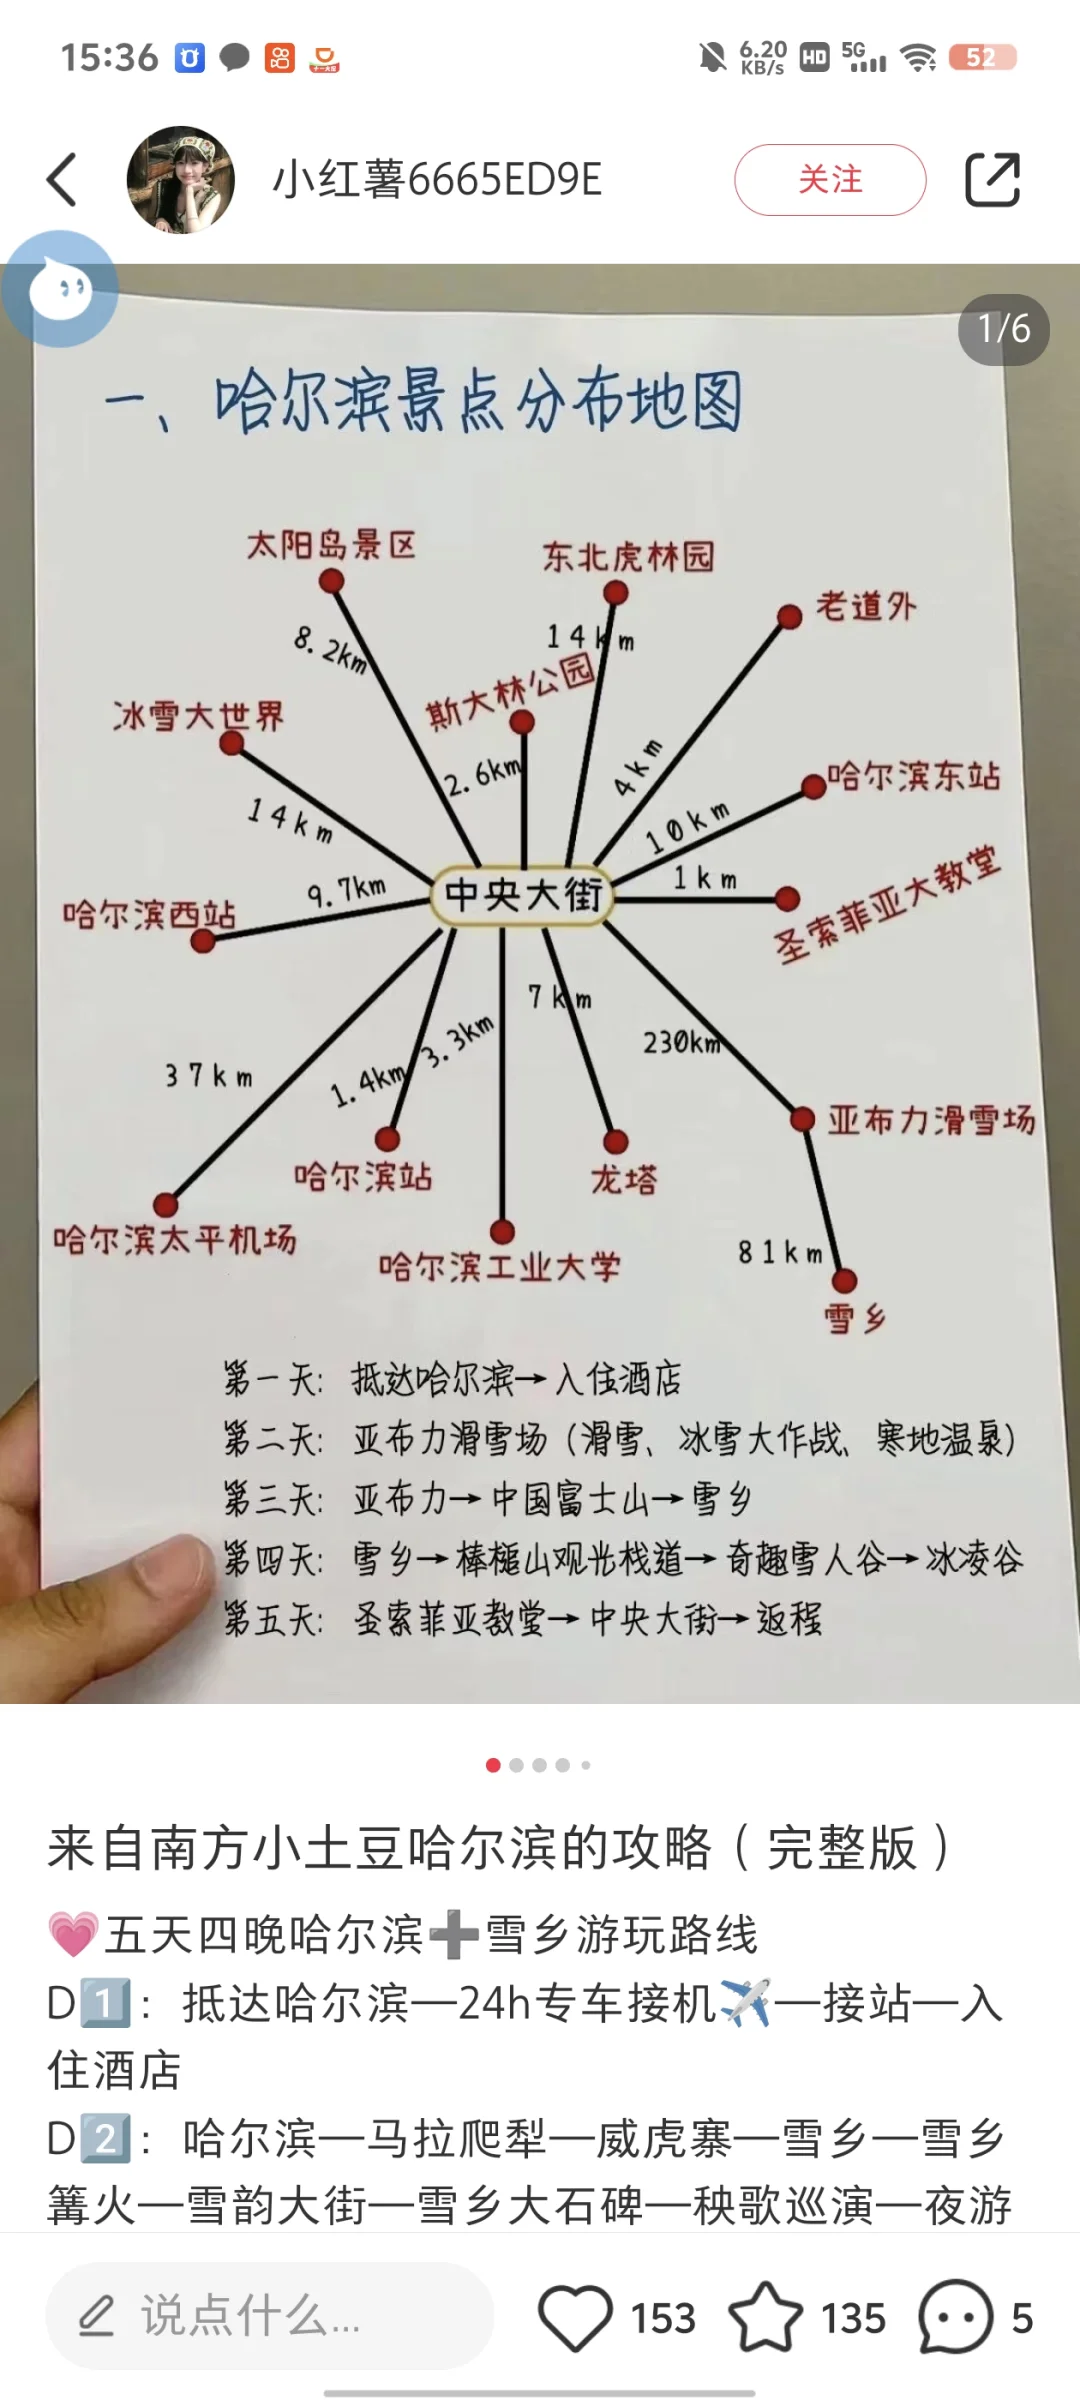 15:36
6.20 KB/s HD 5G 52
小红薯6665ED9E
关注
1/6
一、哈尔滨景点分布地图
太阳岛景区
东北虎林园
老道外
8.2km
14km
斯大林公园
冰雪大世界
2.6km
4km
哈尔滨东站
14km
10km
9.7km
1km
圣索菲亚大教堂
哈尔滨西站
中央大街
7km
3.3km
230km
37km
1.4km
亚布力滑雪场
哈尔滨站
龙塔
哈尔滨太平机场
哈尔滨工业大学
81km
雪乡
第一天: 抵达哈尔滨→入住酒店
第二天: 亚布力滑雪场（滑雪、冰雪大作战、寒地温泉）
第三天: 亚布力→中国富士山→雪乡
第四天: 雪乡→棒槌山观光栈道→奇趣雪人谷→冰凌谷
第五天: 圣索菲亚教堂→中央大街→返程
来自南方小土豆哈尔滨的攻略（完整版）
💗五天四晚哈尔滨➕雪乡游玩路线
D1️⃣：抵达哈尔滨—24h专车接机✈️—接站—入
住酒店
D2️⃣：哈尔滨—马拉爬犁—威虎寨—雪乡—雪乡
篝火—雪韵大街—雪乡大石碑—秧歌巡演—夜游
说点什么...
153
135
5